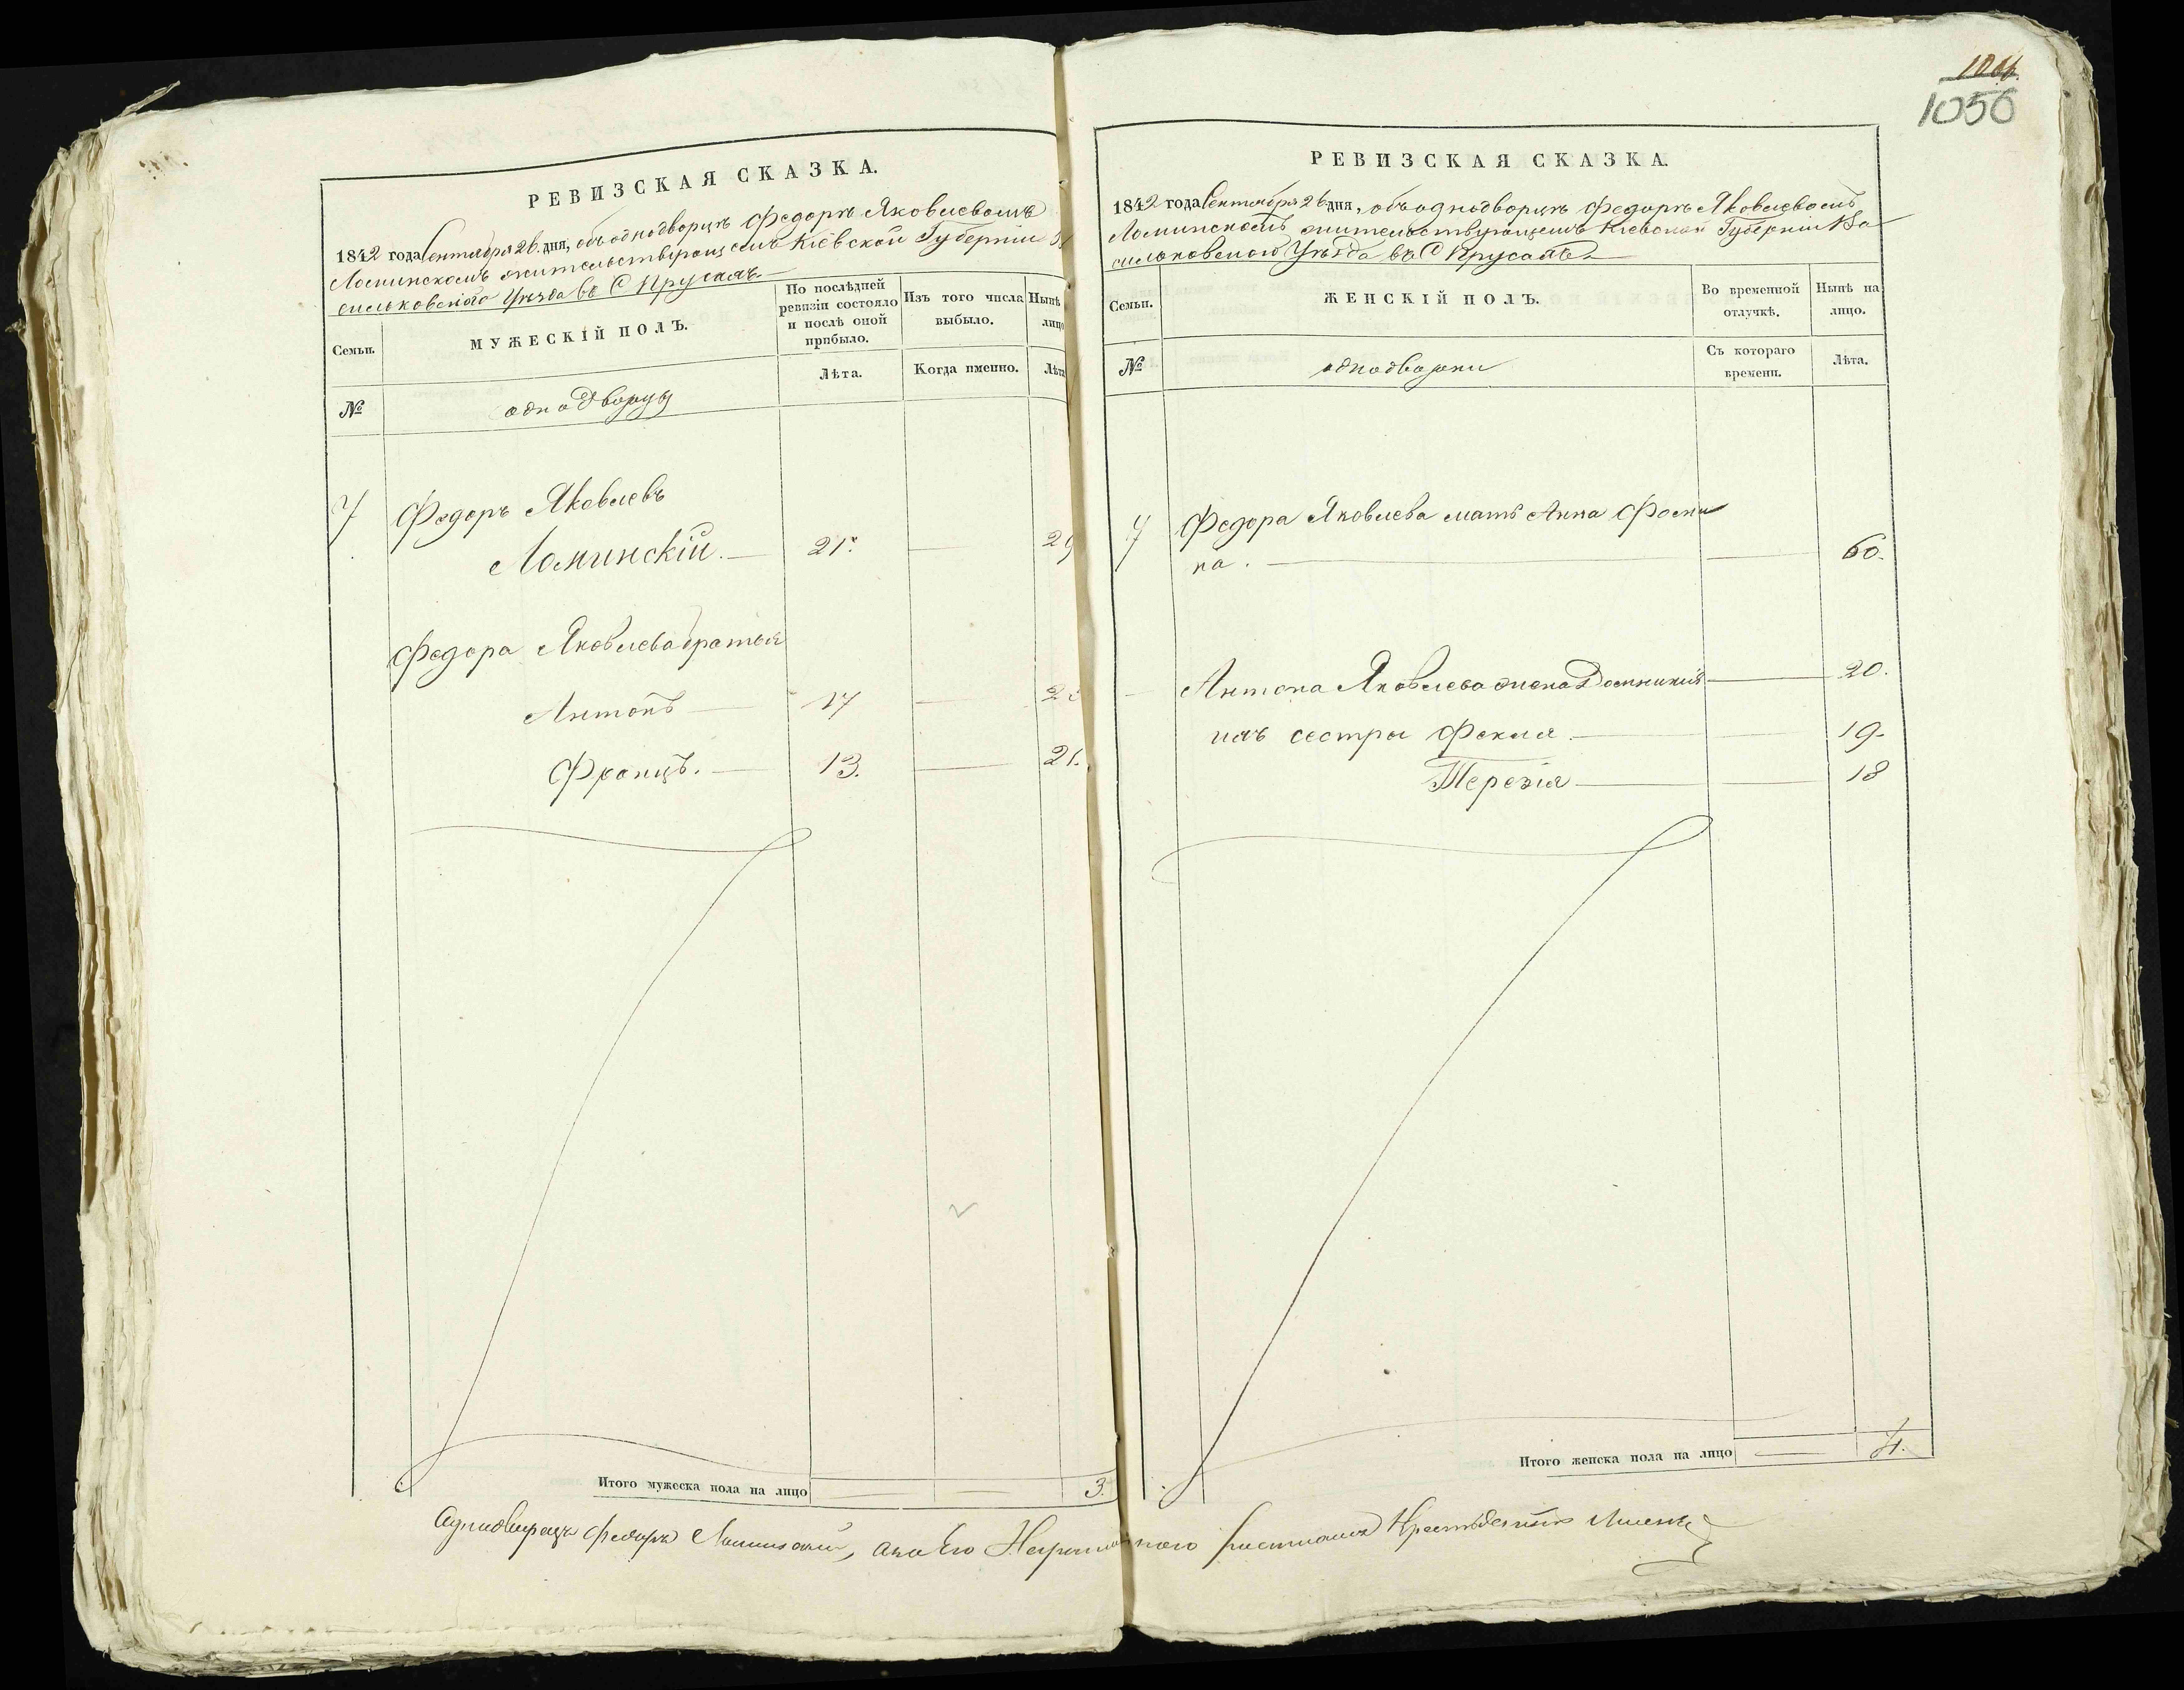 РЕВИЗСКАЯ СКАЗКА.
1842 года Сентября 26 дня, объ однодворцѣ Федорѣ Яковлевомъ
Ломинскомъ жительствующемъ Кіевской Губерніи
сильковскаго Уѣзда въ С Прусахъ.
Семьи.
МУЖЕСКІЙ ПОЛЪ.
По послѣдней ревизіи состояло и послѣ оной прибыло.
Изъ того числа выбыло.
Нынѣ лицо
№
однодворцы
Лѣта.
Когда именно.
Лѣта
7 Федоръ Яковлевъ
Ломинскій. — 21. — 29
Федора Яковлева братья
Антонъ — 17 —
Францъ. — 13. — 21.
Итого мужеска пола на лицо — — 3.
1006.
1056
РЕВИЗСКАЯ СКАЗКА.
1842 года Сентября 26 дня, объ однодворцѣ Федорѣ Яковлевомъ
Ломинскомъ жительствующемъ Кіевской Губерніи Ва
сильковскаго Уѣзда въ С Прусахъ
Семьи.
ЖЕНСКІЙ ПОЛЪ.
Во временной отлучкѣ.
Нынѣ на лицо.
№
однодворки
Съ котораго времени.
Лѣта.
7 Федора Яковлева мать Анна Фоми
на. — — 60.
Антона Яковлева жена Домникія — 20.
ихъ сестры Фекла — — 19.
Терезія — — 18
Итого женска пола на лицо — 4.
Однодворецъ Федоръ Ломинскій, а на Его Неграмотнаго